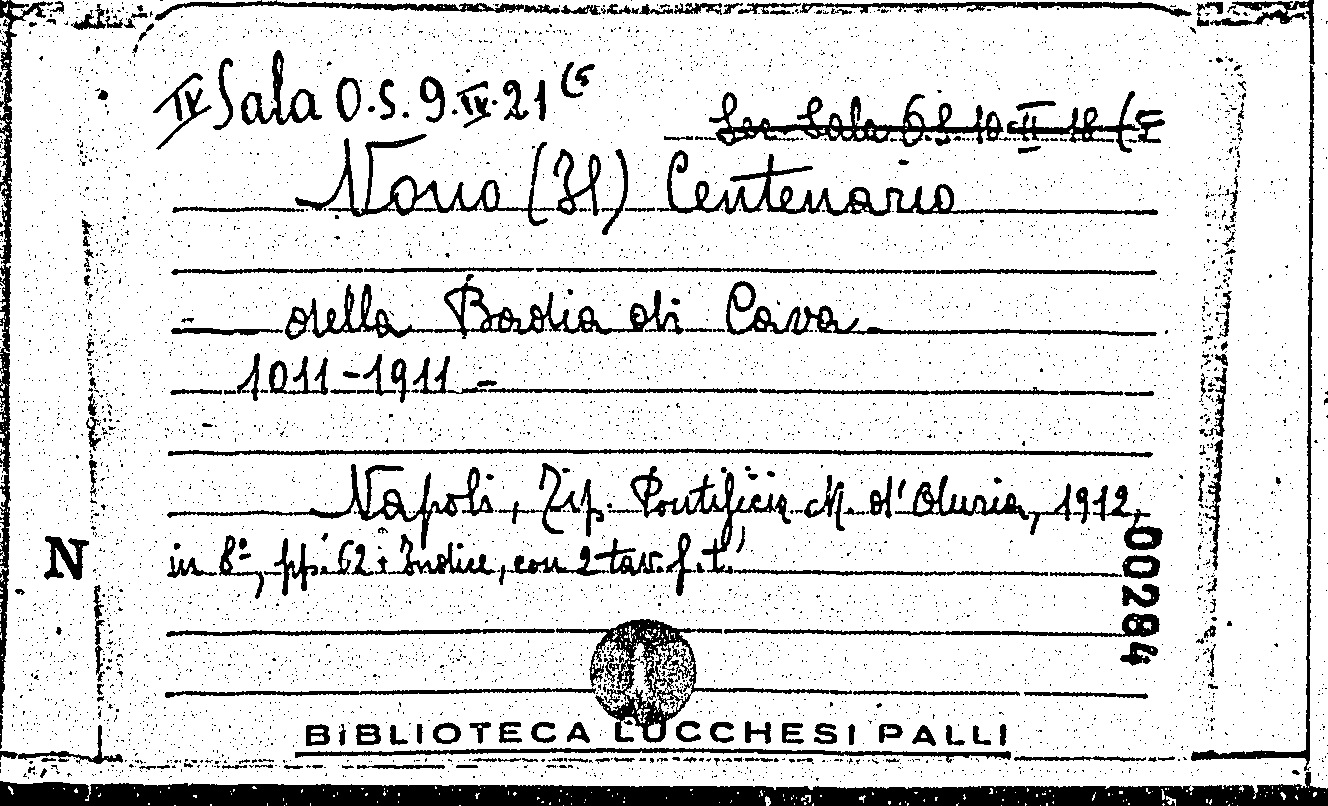 IV Sala O.S. 9.IV.21 (5
Sec Sala O.S. 10-II-18 (5
Nono (Il) Centenario
della Badia di Cava
1011-1911 -
Napoli, Tip. Pontificia M. d'Auria, 1912,
in 8º, pp. 62 + Indice, con 2 tav. f. t.
N
00284
BiBLIOTECA LUCCHESI PALLI